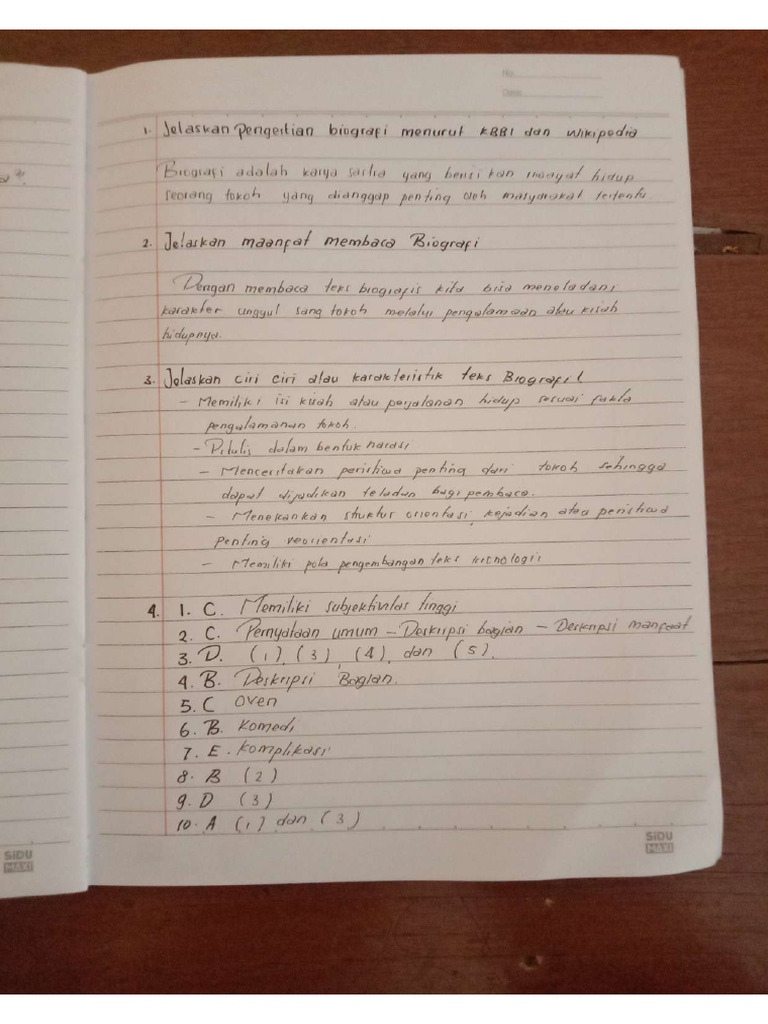 No:
Date:
1. Jelaskan pengertian biografi menurut KBBI dan wikipedia
Biografi adalah karya sastra yang berisikan riwayat hidup
seorang tokoh yang dianggap penting oleh masyarakat tertentu.
2. Jelaskan maanfat membaca Biografi
Dengan membaca teks biografis kita bisa meneladani
karakter unggul sang tokoh melalui pengalamaan atau kisah
hidupnya.
3. Jelaskan ciri ciri atau karakteristik teks Biografi!
- Memiliki isi kisah atau perjalanan hidup sesuai fakta
pengalamanan tokoh.
- Ditulis dalam bentuk narasi
- Menceritakan peristiwa penting dari tokoh sehingga
dapat dijadikan teladan bagi pembaca.
- Menekankan struktur orientasi, kejadian atau peristiwa
penting, reorientasi
- Memiliki pola pengembangan teks kronologis
4. 1. C. Memiliki subjektivitas tinggi
2. C. Pernyataan umum - Deskripsi bagian - Deskripsi manfaat
3. D. (1), (3), (4), dan (5).
4. B. Deskripsi Bagian.
5. C Oven
6. B. Komedi
7. E. Komplikasi
8. B (2)
9. D (3)
10. A (1) dan (3)
SiDU
MAXI
SiDU
MAXI